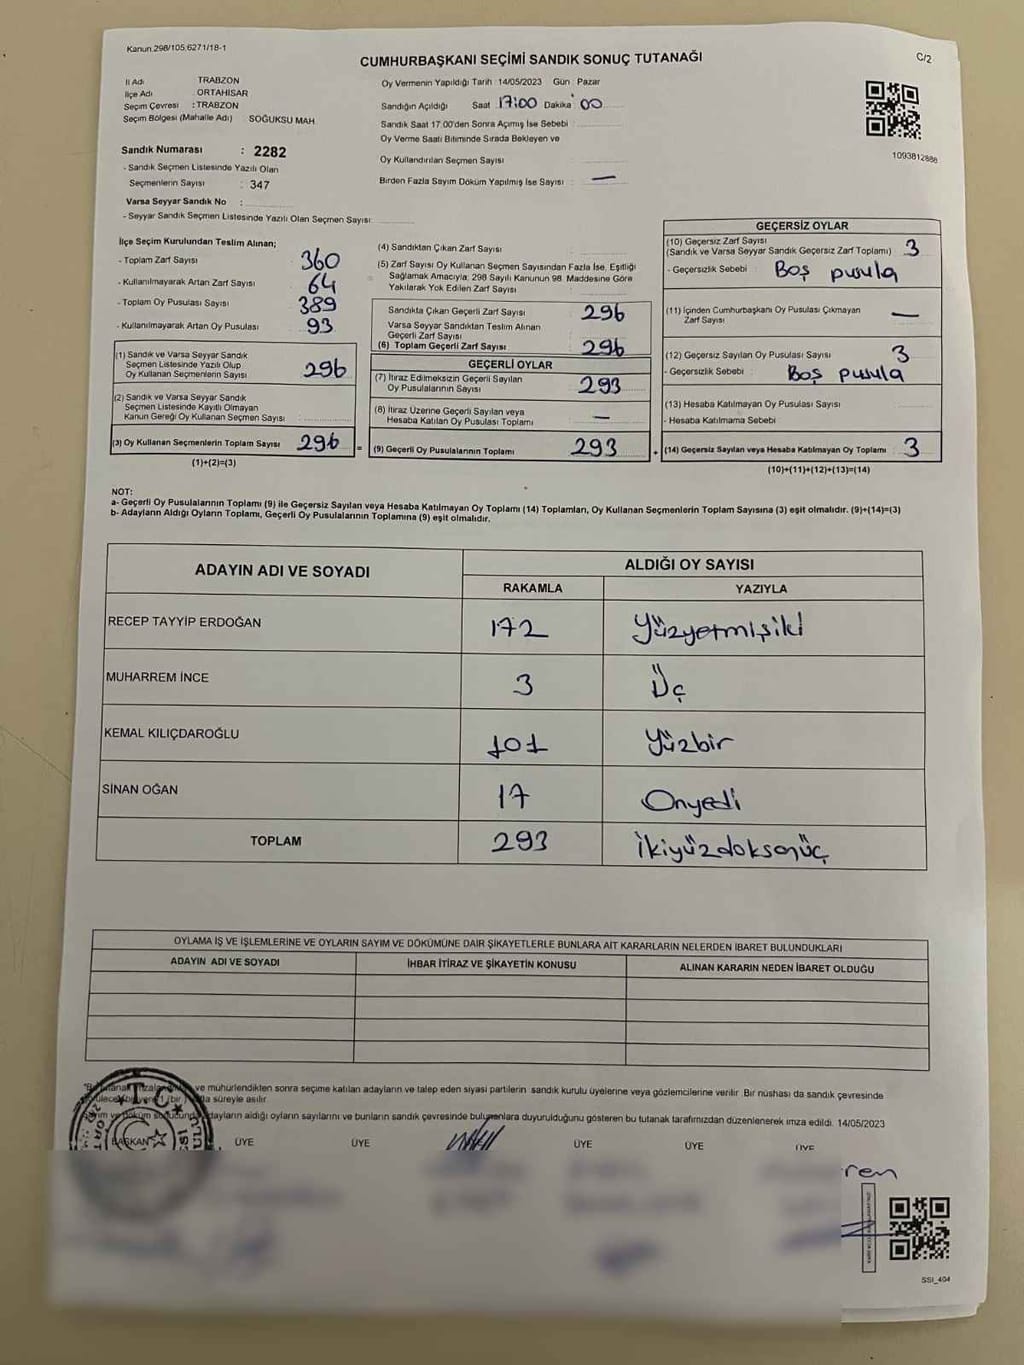 Kanun 298/105,6271/18-1
CUMHURBAŞKANI SEÇİMİ SANDIK SONUÇ TUTANAĞI
C/2
İl Adı TRABZON
İlçe Adı : ORTAHİSAR
Seçim Çevresi : TRABZON
Seçim Bölgesi (Mahalle Adı) SOĞUKSU MAH.
Oy Vermenin Yapıldığı Tarih :14/05/2023 Gün : Pazar
Sandığın Açıldığı Saat 17:00 Dakika 00
Sandık Saat 17.00'den Sonra Açımış İse Sebebi :
Oy Verme Saati Bitiminde Sırada Bekleyen ve
Oy Kullandırılan Seçmen Sayısı
Birden Fazla Sayım Döküm Yapılmış İse Sayısı : —
1093812888
Sandık Numarası : 2282
- Sandık Seçmen Listesinde Yazılı Olan
Seçmenlerin Sayısı : 347
Varsa Seyyar Sandık No :
- Seyyar Sandık Seçmen Listesinde Yazılı Olan Seçmen Sayısı:
İlçe Seçim Kurulundan Teslim Alınan;
- Toplam Zarf Sayısı : 360
- Kullanılmayarak Artan Zarf Sayısı : 64
- Toplam Oy Pusulası Sayısı : 389
- Kullanılmayarak Artan Oy Pusulası : 93
(1) Sandık ve Varsa Seyyar Sandık
Seçmen Listesinde Yazılı Olup
Oy Kullanan Seçmenlerin Sayısı : 296
(2) Sandık ve Varsa Seyyar Sandık
Seçmen Listesinde Kayıtlı Olmayan
Kanun Gereği Oy Kullanan Seçmen Sayısı :
(3) Oy Kullanan Seçmenlerin Toplam Sayısı : 296 =
(1)+(2)=(3)
(4) Sandıktan Çıkan Zarf Sayısı :
(5) Zarf Sayısı Oy Kullanan Seçmen Sayısından Fazla İse, Eşitliği
Sağlamak Amacıyla, 298 Sayılı Kanunun 98. Maddesine Göre
Yakılarak Yok Edilen Zarf Sayısı :
Sandıkta Çıkan Geçerli Zarf Sayısı : 296
Varsa Seyyar Sandıktan Teslim Alınan
Geçerli Zarf Sayısı :
(6) Toplam Geçerli Zarf Sayısı : 296
GEÇERLİ OYLAR
(7) İtiraz Edilmeksizin Geçerli Sayılan
Oy Pusulalarının Sayısı : 293
(8) İtiraz Üzerine Geçerli Sayılan veya
Hesaba Katılan Oy Pusulası Toplamı : —
(9) Geçerli Oy Pusulalarının Toplamı : 293 +
GEÇERSİZ OYLAR
(10) Geçersiz Zarf Sayısı
(Sandık ve Varsa Seyyar Sandık Geçersiz Zarf Toplamı) : 3
- Geçersizlik Sebebi : Boş pusula
(11) İçinden Cumhurbaşkanı Oy Pusulası Çıkmayan
Zarf Sayısı : —
(12) Geçersiz Sayılan Oy Pusulası Sayısı : 3
- Geçersizlik Sebebi : Boş pusula
(13) Hesaba Katılmayan Oy Pusulası Sayısı :
- Hesaba Katılmama Sebebi :
(14) Geçersiz Sayılan veya Hesaba Katılmayan Oy Toplamı : 3
(10)+(11)+(12)+(13)=(14)
NOT:
a- Geçerli Oy Pusulalarının Toplamı (9) ile Geçersiz Sayılan veya Hesaba Katılmayan Oy Toplamı (14) Toplamları, Oy Kullanan Seçmenlerin Toplam Sayısına (3) eşit olmalıdır. (9)+(14)=(3)
b- Adayların Aldığı Oyların Toplamı, Geçerli Oy Pusulalarının Toplamına (9) eşit olmalıdır.
ADAYIN ADI VE SOYADI
ALDIĞI OY SAYISI
RAKAMLA YAZIYLA
RECEP TAYYİP ERDOĞAN 172 Yüzyetmişiki
MUHARREM İNCE 3 Üç
KEMAL KILIÇDAROĞLU 101 Yüzbir
SİNAN OĞAN 17 Onyedi
TOPLAM 293 İkiyüzdoksanüç
OYLAMA İŞ VE İŞLEMLERİNE VE OYLARIN SAYIM VE DÖKÜMÜNE DAİR ŞİKAYETLERLE BUNLARA AİT KARARLARIN NELERDEN İBARET BULUNDUKLARI
ADAYIN ADI VE SOYADI İHBAR İTİRAZ VE ŞİKAYETİN KONUSU ALINAN KARARIN NEDEN İBARET OLDUĞU
ve mühürlendikten sonra seçime katılan adayların ve talep eden siyasi partilerin sandık kurulu üyelerine veya gözlemcilerine verilir. Bir nüshası da sandık çevresinde
süreyle asılır.
adayların aldığı oyların sayılarını ve bunların sandık çevresinde bulunanlara duyurulduğunu gösteren bu tutanak tarafımızdan düzenlenerek imza edildi. 14/05/2023
BAŞKAN ÜYE ÜYE ÜYE ÜYE ÜYE
T.C.
SSİ_404